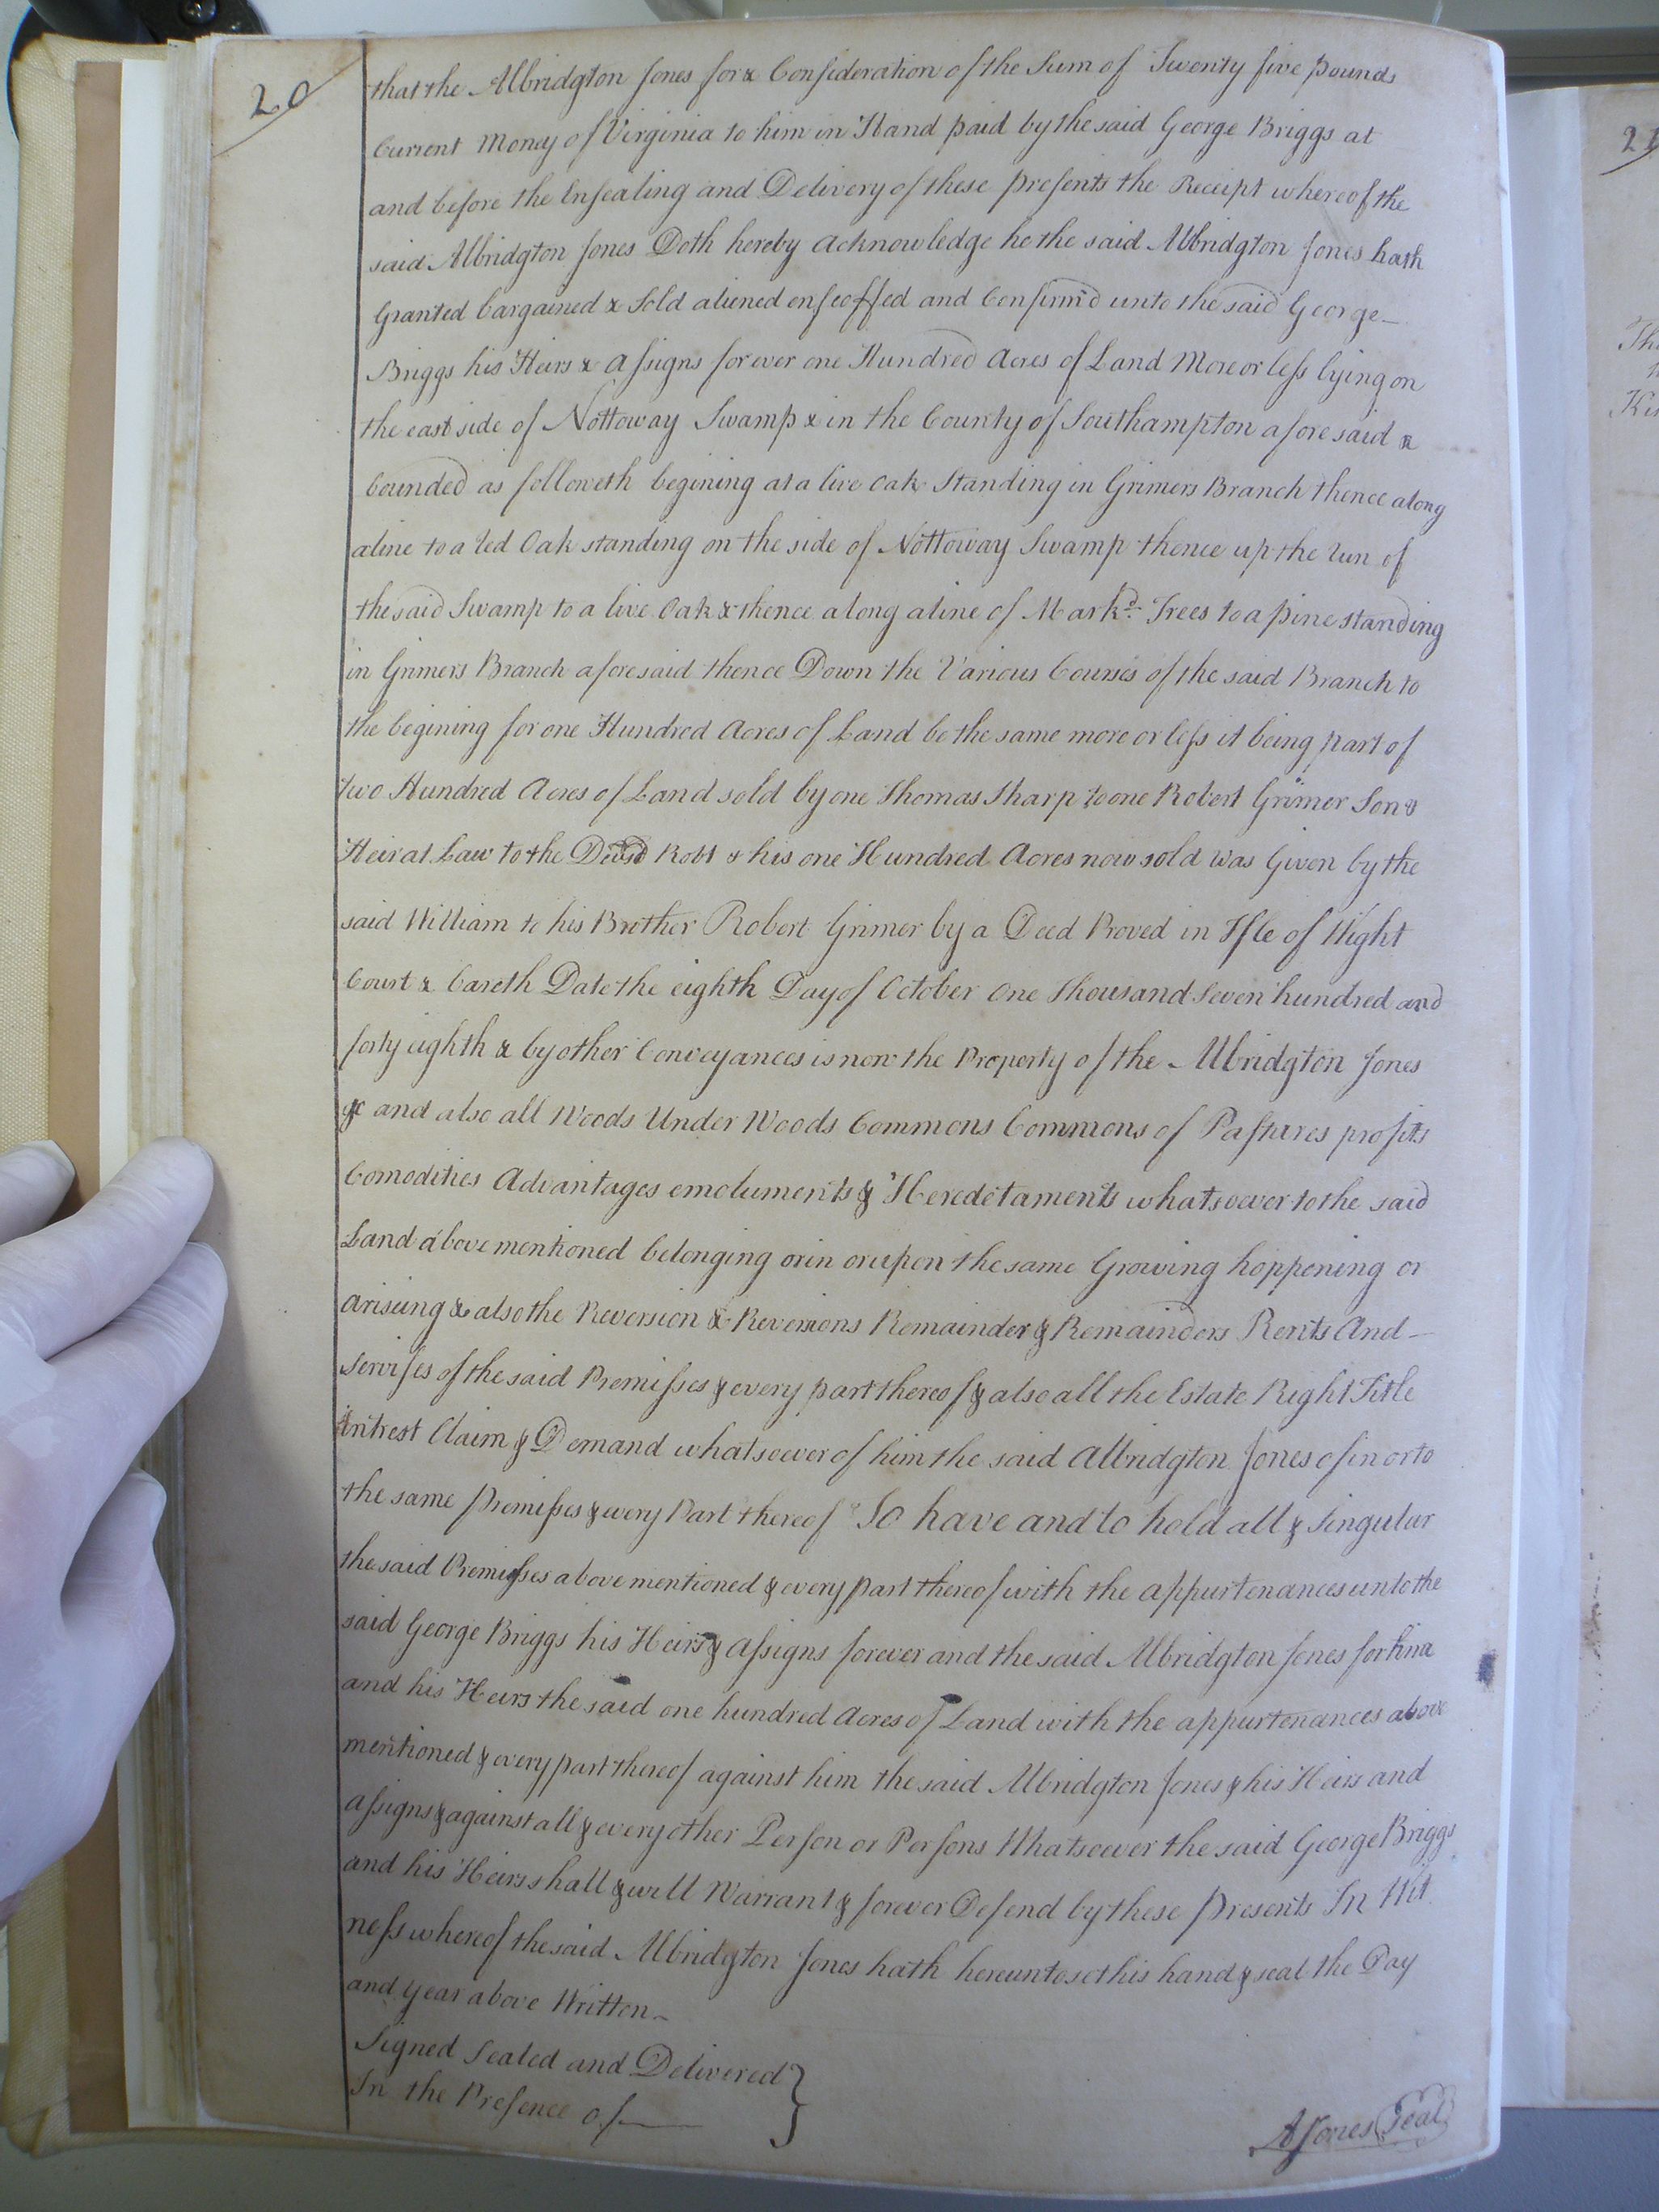 20
that the Albridgton Jones for & Consideration of the Sum of Twenty five pounds
Current Money of Virginia to him in Hand paid by the said George Briggs at
and before the Ensealing and Delivery of these presents the Receipt whereof the
said Albridgton Jones Doth hereby acknowledge he the said Albridgton Jones hath
Granted bargained & Sold aliened enfeoffed and Confirm'd unto the said George
Briggs his Heirs & Assigns forever one Hundred Acres of Land More or less lying on
the east side of Nottoway Swamp & in the County of Southampton aforesaid &
bounded as followeth begining at a live Oak Standing in Grimers Branch thence along
a line to a Red Oak standing on the side of Nottoway Swamp thence up the Run of
the said Swamp to a live Oak & thence along a line of Markd. Trees to a pine standing
in Grimers Branch aforesaid thence Down the Various Courses of the said Branch to
the begining for one Hundred Acres of Land be the same more or less it being part of
two Hundred Acres of Land sold by one Thomas Sharp to one Robert Grimer Son &
Heir at Law to the Robt & his one Hundred Acres now sold was Given by the
said William to his Brother Robert Grimer by a Deed Proved in Isle of Wight
Court & bareth Date the eighth Day of October One Thousand Seven hundred and
forty eighth & by other Conveyances is now the Property of the Albridgton Jones
and also all Woods Under Woods Commons Commons of Pastures profits
Comodities Advantages emoluments & Heredetaments whatsoever to the said
Land above mentioned belonging or in or upon the same Growing happening or
arising & also the Reversion & Reversions Remainder & Remainders Rents And
Servises of the said Premisses & every part thereof & also all the Estate Right Title
Intrest Claim & Demand whatsoever of him the said Albridgton Jones of in or to
the same premisses & every Part thereof To have and to hold all & Singular
the said Premisses above mentioned & every part thereof with the appurtenances unto the
said George Briggs his Heirs & Assigns forever and the said Albridgton Jones for him
and his Heirs the said one hundred Acres of Land with the appurtenances above
mentioned & every part thereof against him the said Albridgton Jones & his Heirs and
assigns & against all & every other Person or Persons Whatsoever the said George Briggs
and his Heirs shall & will Warrant & forever Defend by these presents In Wit
ness whereof the said Albridgton Jones hath hereunto set his hand & seal the Day
and year above Written
Signed Sealed and Delivered
In the Presence of
A Jones Seal